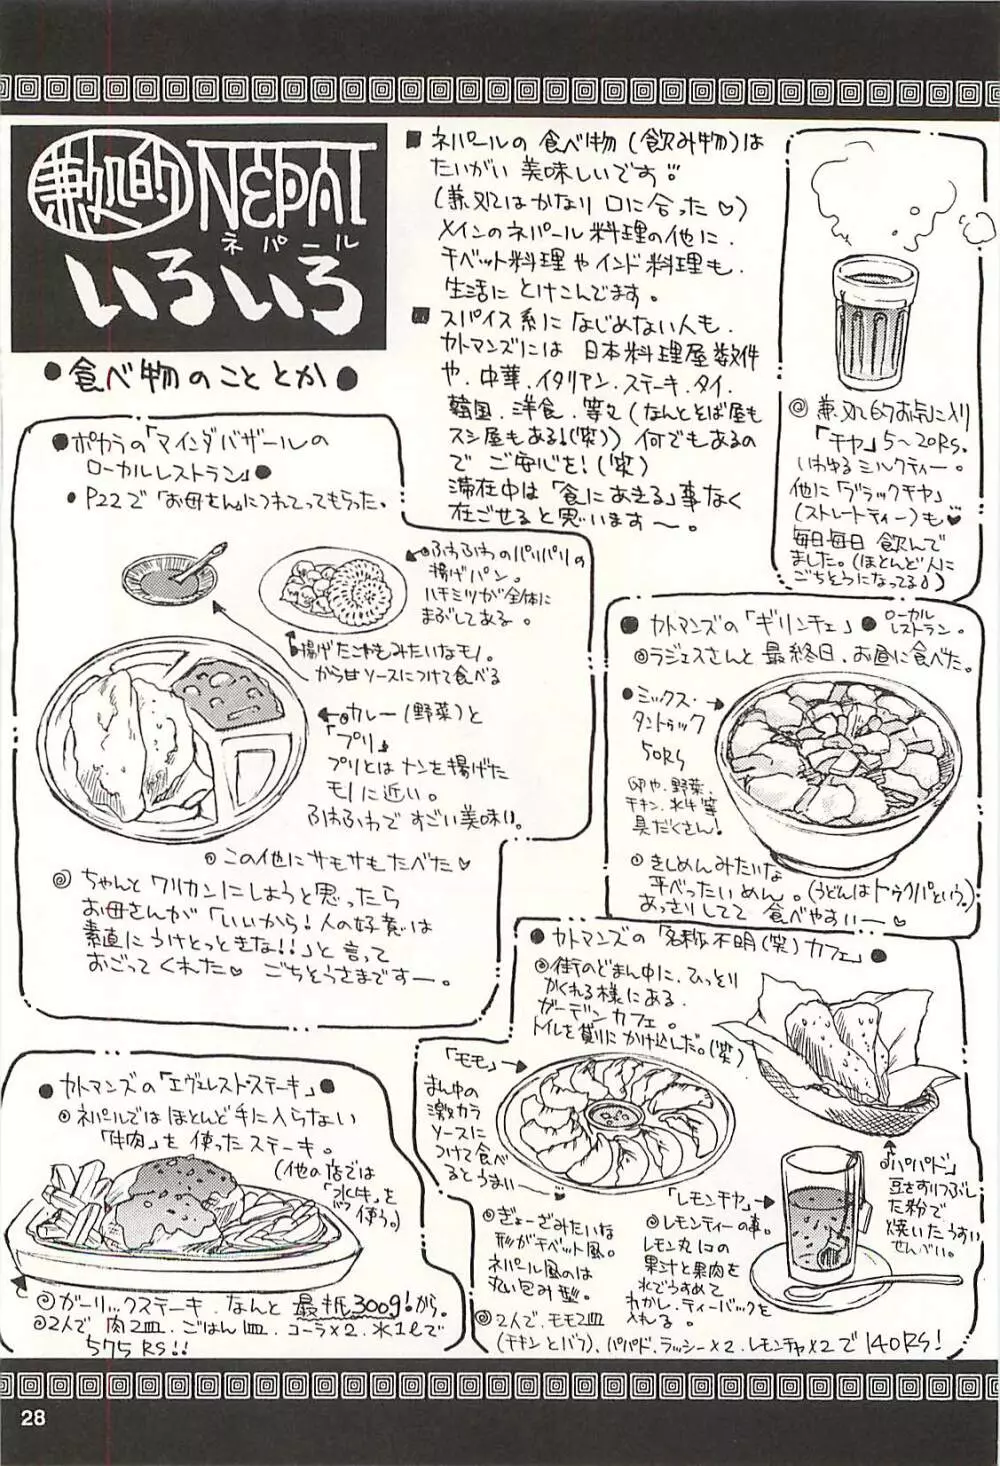 兼処的 NEPAL
ネパール
いろいろ
●食べ物のこととか●
■ネパールの食べ物(飲み物)は
たいがい美味しいです
(兼処はかなり口に合った♡)
メインのネパール料理の他に、
チベット料理やインド料理も、
生活にとけこんでます。
■スパイス系になじめない人も、
カトマンズには日本料理屋数件
や、中華、イタリアン、ステーキ、タイ、
韓国、洋食、等々(なんとそば屋も
スシ屋もある!(笑))何でもあるの
でご安心を!(笑)
滞在中は「食にあきる」事なく
在ごせると思います〜。
◎兼処的お気に入り
「チヤ」5〜20RS.
いわゆるミルクティー。
他に「ブラックチヤ」
(ストレートティー)も♥
毎日毎日飲んで
ました。(ほとんど人に
ごちそうになってる♪)
●ポカラの「マインダバザールの
ローカルレストラン」●
・P22で「お母さん」につれてってもらった。
ふわふわのパリパリの
揚げパン。
ハチミツが全体に
まぶしてある。
揚げたこ焼きみたいなモノ。
から甘ソースにつけて食べる
カレー(野菜)と
「プリ」
プリとはナンを揚げた
モノに近い。
ふわふわですごい美味い。
◎この他にサモサもたべた♥
◎ちゃんとワリカンにしようと思ったら
お母さんが「いいから!人の好意は
素直にうけとっときな!!」と言って
おごってくれた♥ ごちそうさまです〜。
●カトマンズの「ギリンチェ」●ローカル
レストラン。
◎ラジェスさんと最終日、お昼に食べた。
●ミックス・
タントゥック
50RS
卵や、野菜、
チキン、水牛等
具だくさん!
◎きしめんみたいな
平べったいめん。(うどんはトゥクパという。)
あっさりしてて食べやすい〜♡
●カトマンズの「名称不明(笑)カフェ」●
◎街のどまん中に、ひっそり
かくれる様にある
ガーデンカフェ。
トイレを貸りにかけ込んだ。(笑)
「モモ」
まん中の
激カラ
ソースに
つけて食べ
るとうまい〜
◎ぎょーざみたいな
形がチベット風。
ネパール風のは
丸い包み型。
「パパド」
豆をすりつぶし
た粉で
焼いたうすい
せんべい。
「レモンチヤ」
◎レモンティーの事。
レモン丸1コの
果汁と果肉を
水でうすめて
わかし、ティーバックを
入れる。
◎2人で、モモ2皿
(チキンとバフ)、パパド、ラッシー×2、レモンチャ×2で140RS!
●カトマンズの「エヴェレスト・ステーキ」●
◎ネパールではほとんど手に入らない
「牛肉」を使ったステーキ。
(他の店では
「水牛」を
使う。)
◎ガーリックステーキ、なんと最低300g!から。
◎2人で肉2皿、ごはん1皿、コーラ×2、水1ℓで
575RS!!
28